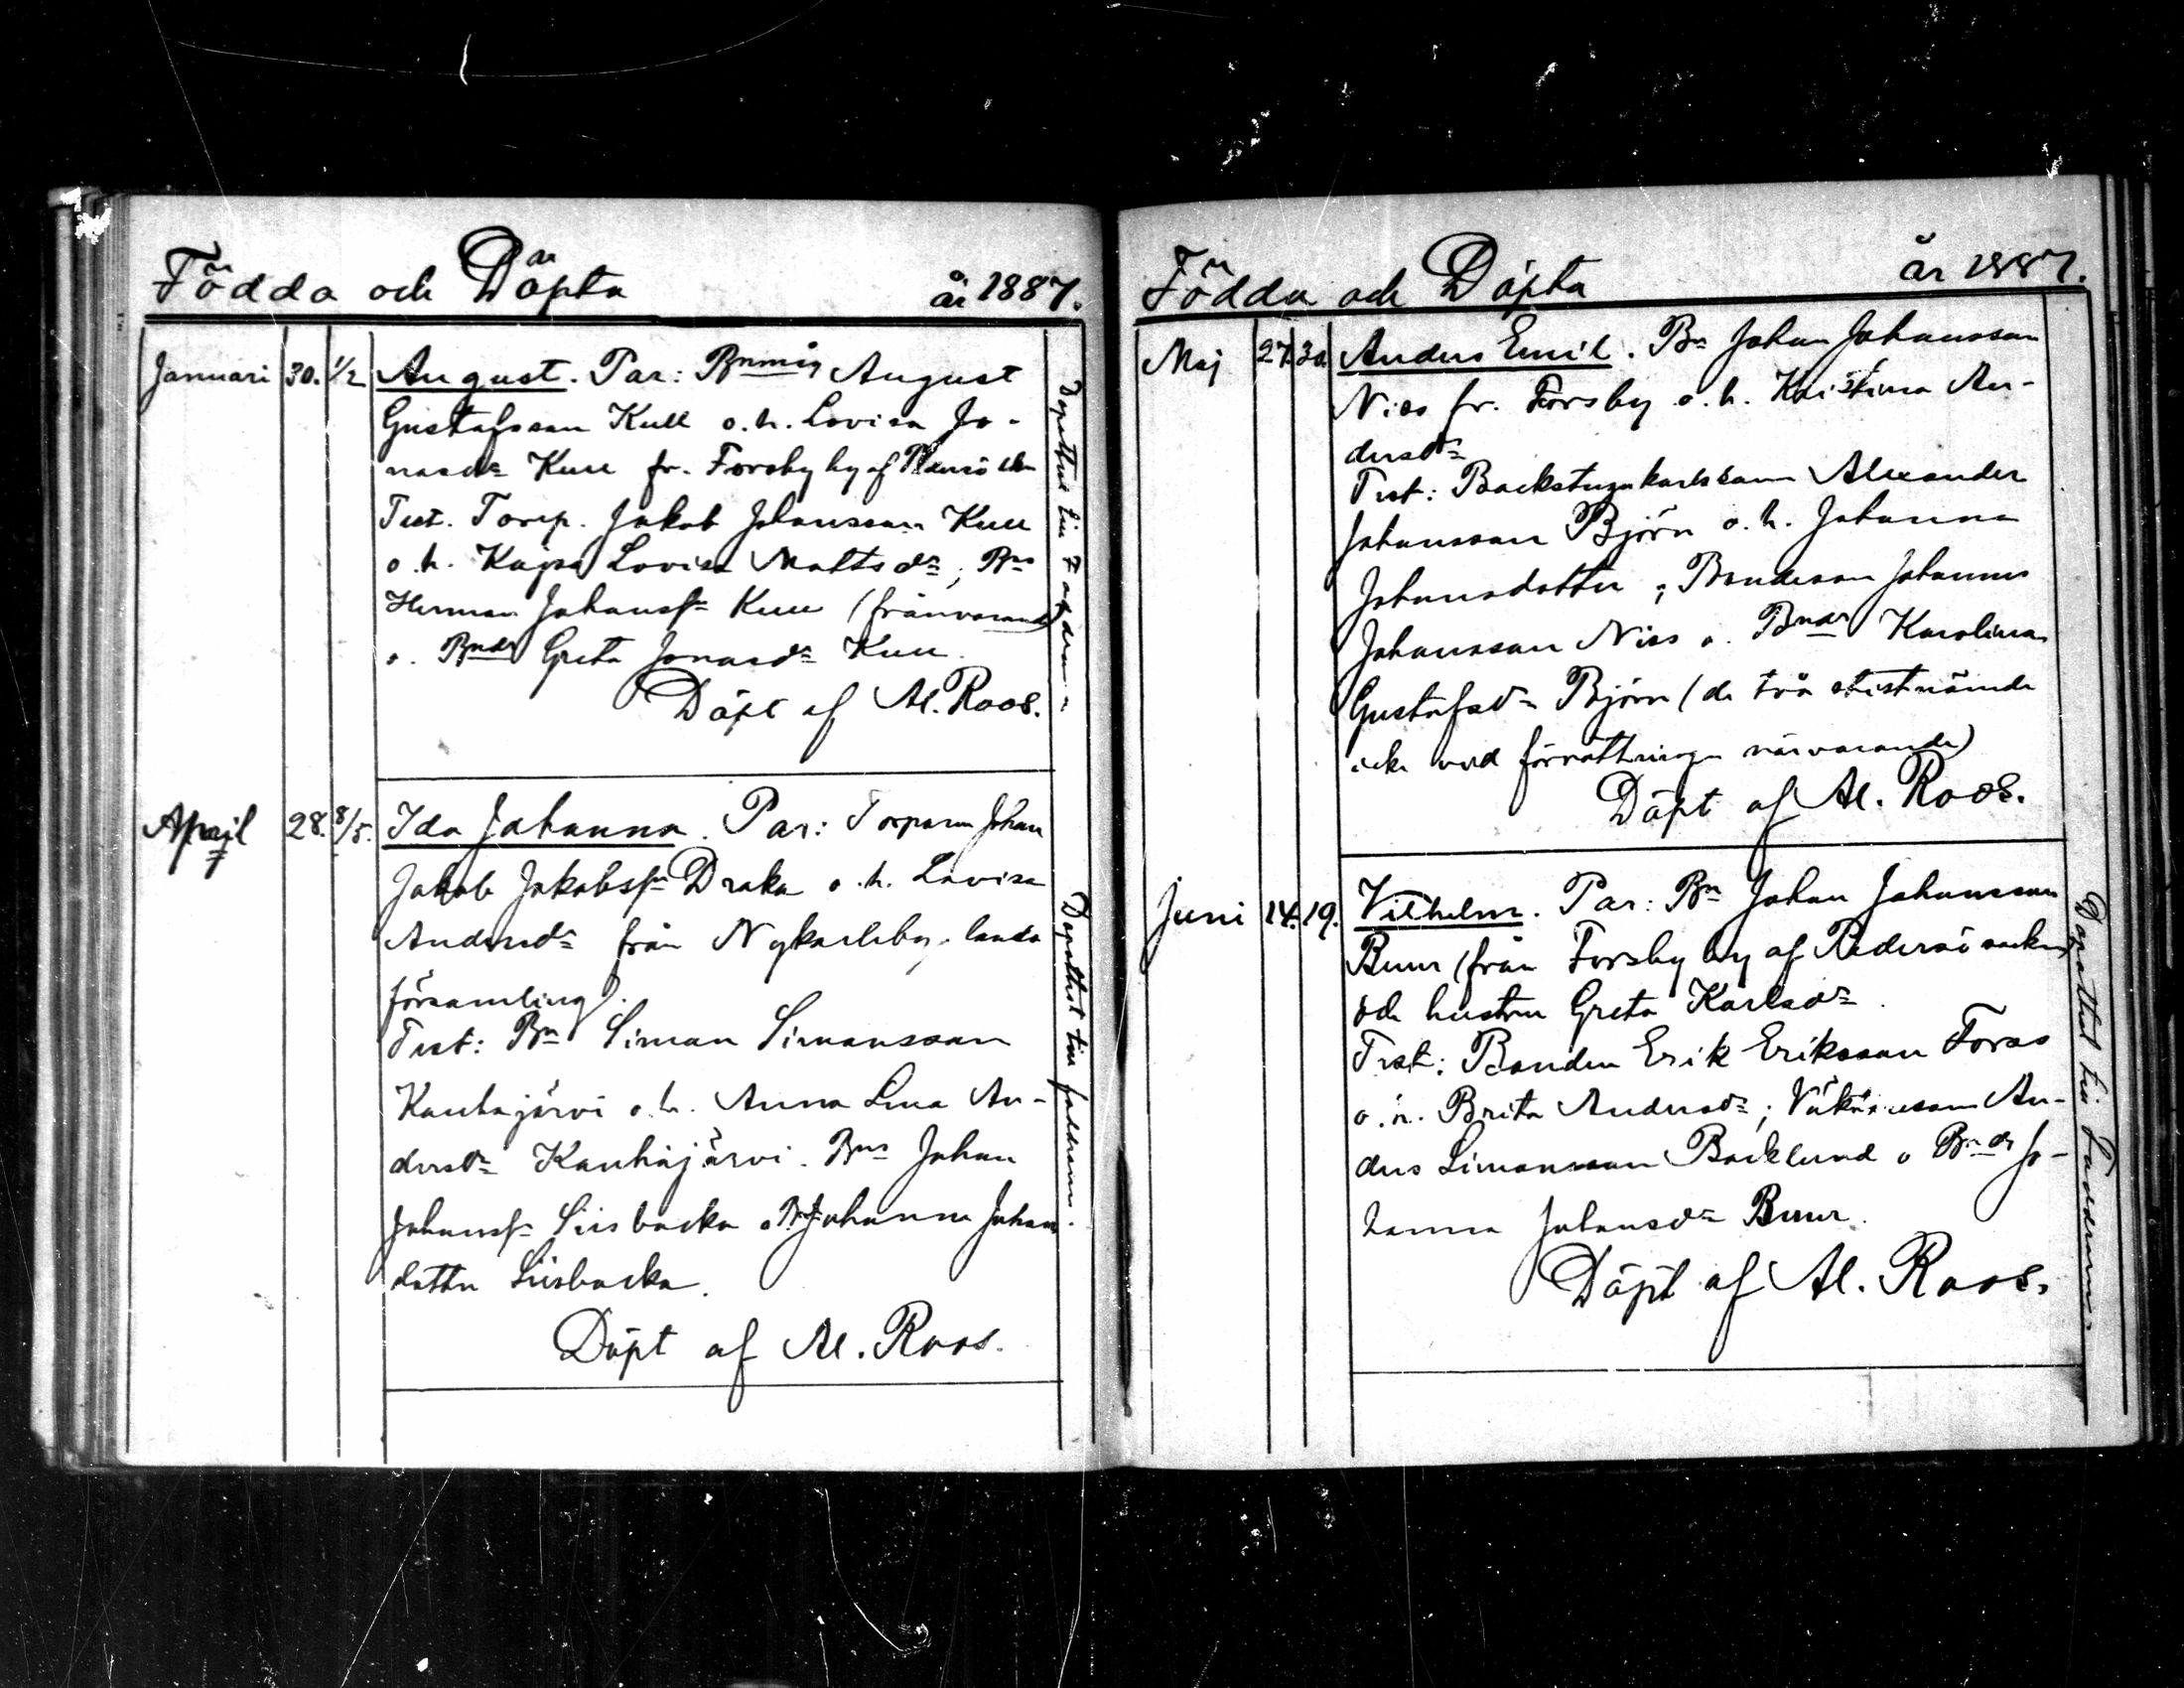 Födda och Döpta år 1887.
Januari 30. 1/2 August. Par: Bnmåg August
Gustafsson Kull o. h. Lovisa Jo-
nasdr Kull fr. Forsby by af Pedersö skn
Test. Torp. Jakob Johansson Kull
o. h. Kajsa Lovisa Mattsdr; Bns
Herman Johanssn Kull (frånvarande)
o. Bndr Greta Jonasdr Kull.
Döpt af Al. Roos.
Dopattest till Faddrarna
April 28. 8/5. Ida Johanna. Par: Torparen Johan
Jakob Jakobssn Draka o. h. Lovisa
Andersdr från Nykarleby landa
församling).
Test: Bn Simon Simonsson
Kauhajärvi o. h. Anna Lena An-
dersdr Kauhajärvi. Bns Johan
Johanssn Liisbacka o Johanna Johans
dotter Liisbacka.
Döpt af Al. Roos.
Dopattest till faddrarna.
Födda och Döpta år 1887.
Maj 27. 30. Anders Emil. Bn Johan Johansson
Niss fr. Forsby o. h. Kristina An-
dersdr
Test: Backstugukarlssonen Alexander
Johansson Björn o. h. Johanna
Johansdotter; Bondeson Johannes
Johansson Niss o. Bndr Karolina
Gustafsdr Björn (de två sistnämda
icke vid förrättningen närvarande)
Döpt af Al. Roos.
Juni 14. 19. Vilhelm. Par: Bn Johan Johansson
Buur (från Forsby by af Pedersö socken)
och hustru Greta Karlsdr.
Test: Bonden Erik Eriksson Forss
o. h. Brita Andersdr; An-
ders Simonsson Backlund o Bndr Jo-
hanna Johansdr Buur.
Döpt af Al. Roos.
Dopattest till Faddrarna